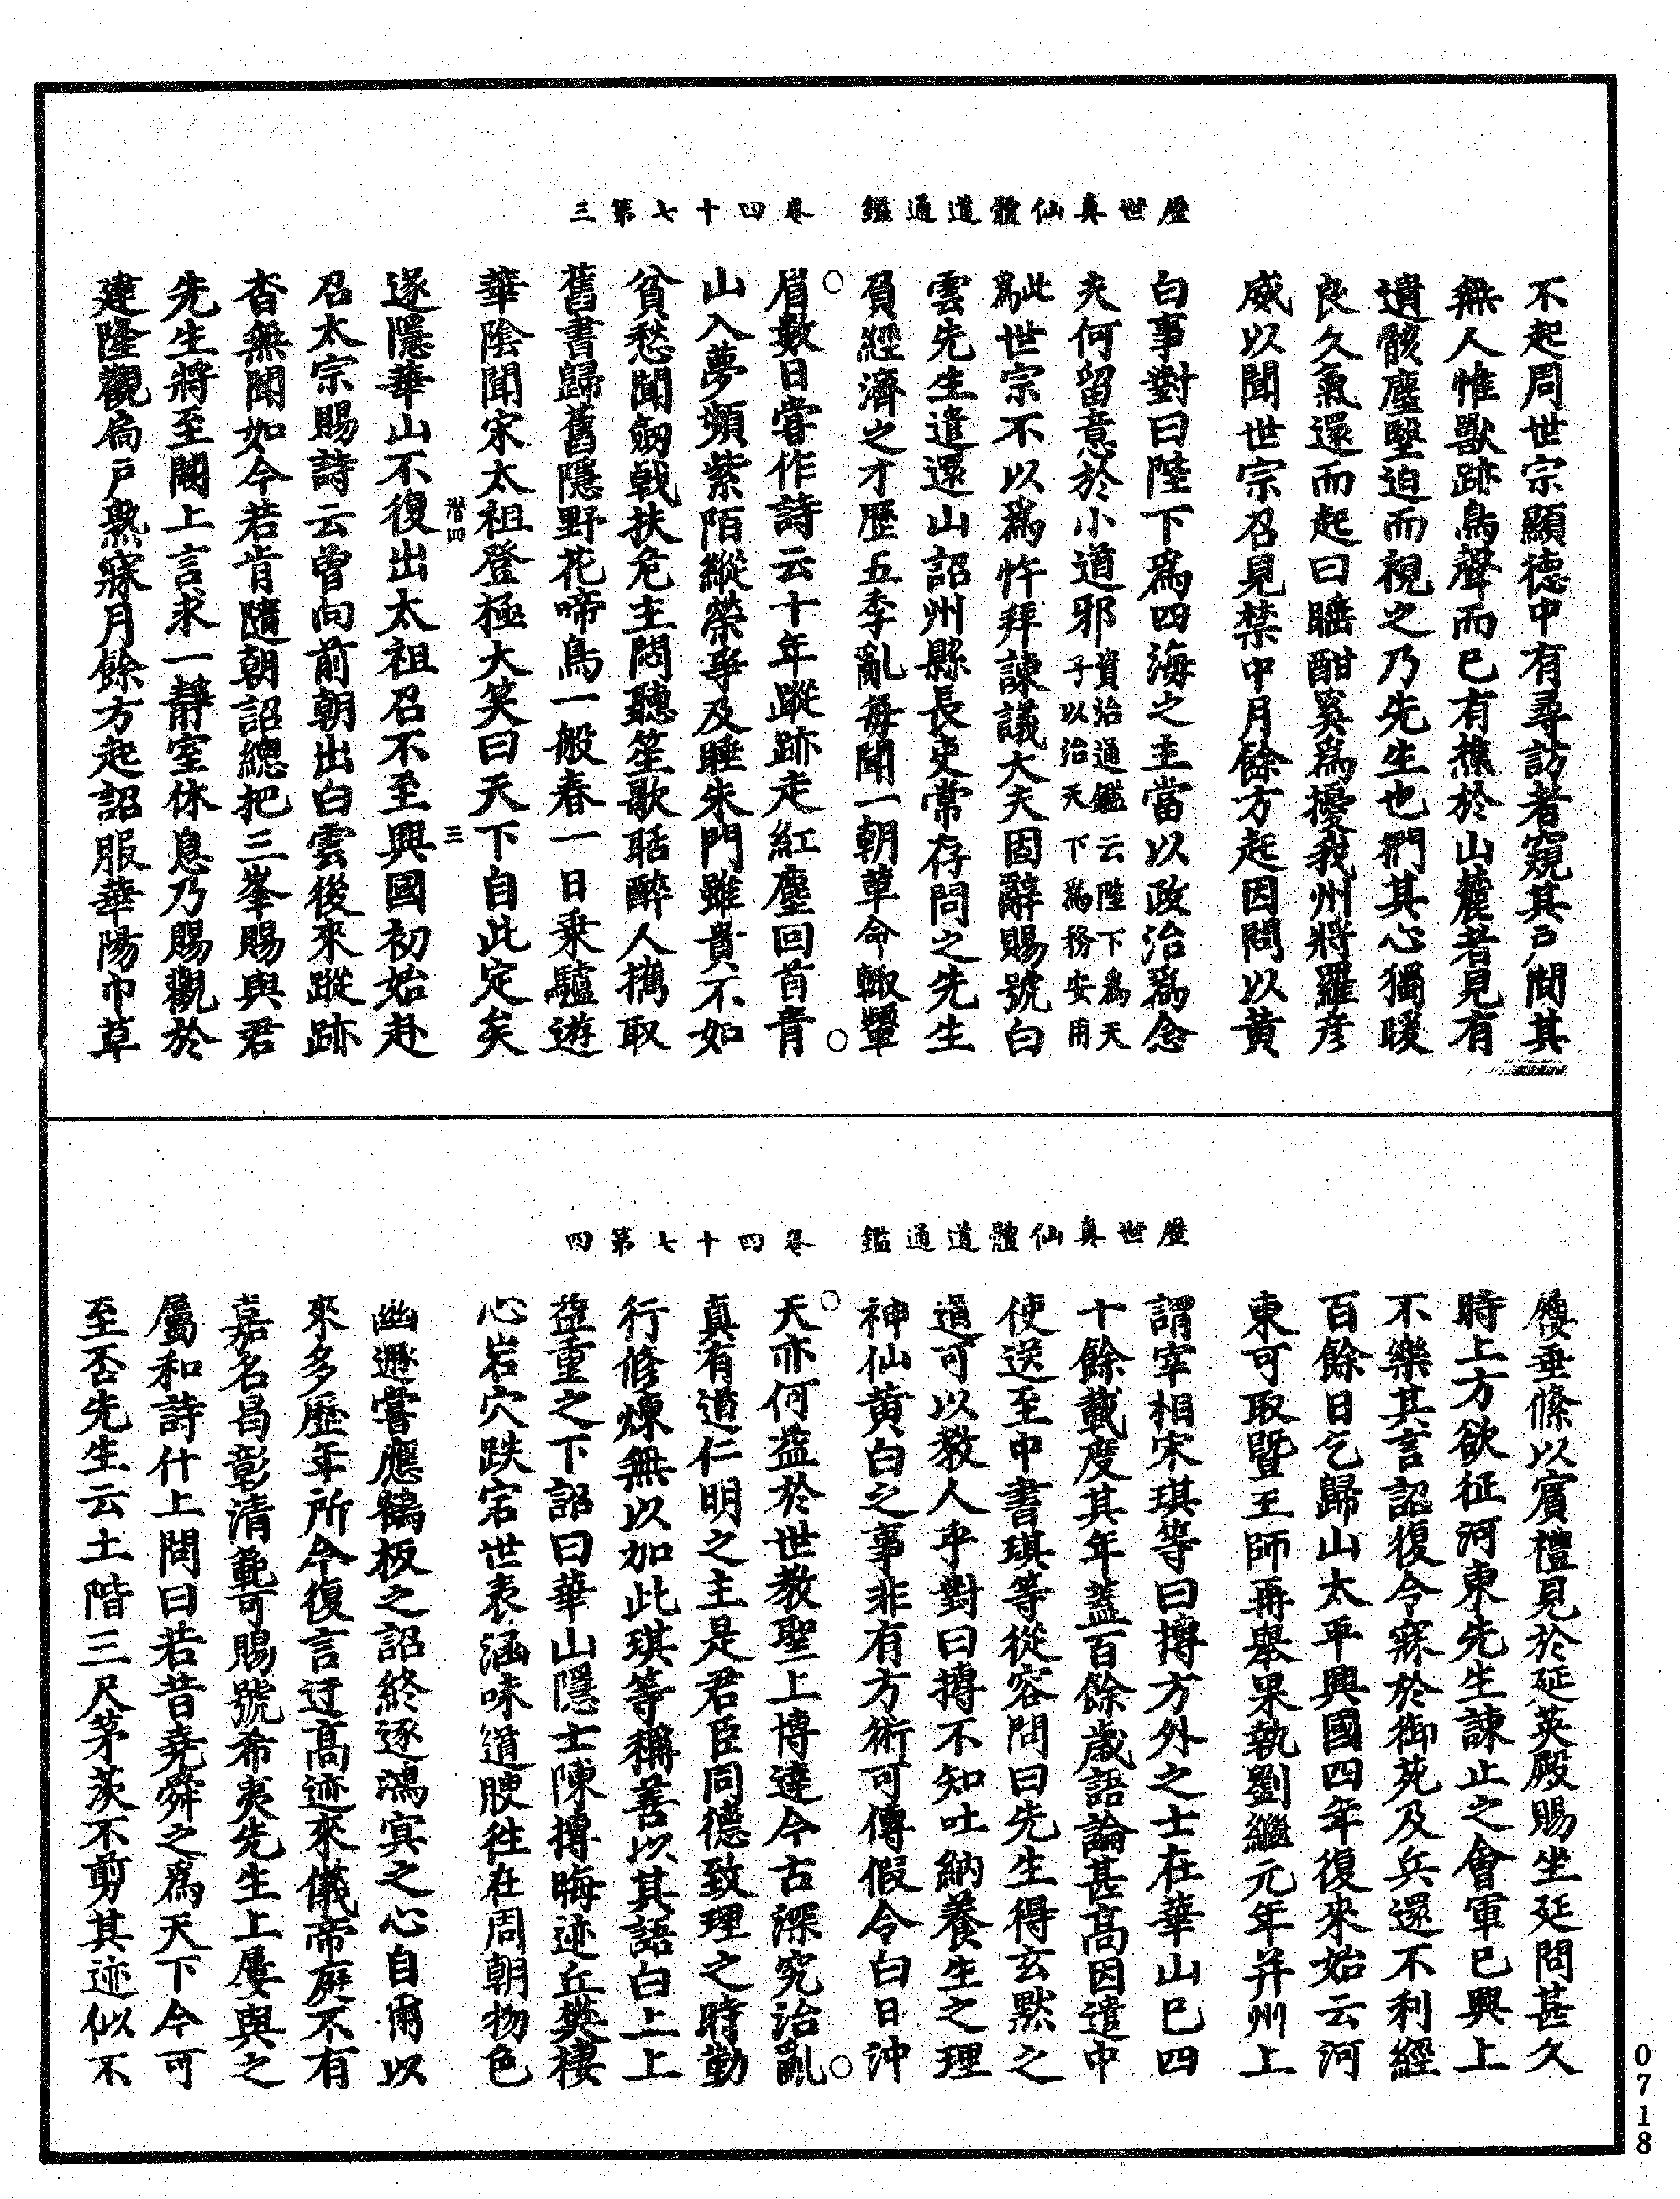 歷世真仙體道通鑑　卷四十七第三
不起周世宗顯德中有尋訪者窺其戶間其
無人惟獸跡鳥聲而已有樵於山麓者見有
遺骸塵壓迫而視之乃先生也捫其心獨暖
良久氣還而起曰睡酣奚爲擾我州將羅彥
威以聞世宗召見禁中月餘方起因問以黃
白事對曰陛下爲四海之主當以政治爲念
夫何留意於小道邪資治通鑑云陛下爲天子以治天下爲務安用
此爲世宗不以爲忤拜諫議大夫固辭賜號白
雲先生遣還山詔州縣長吏常存問之先生
負經濟之才歷五季亂每聞一朝革命輒顰
眉數日嘗作詩云十年蹤跡走紅塵回首青
山入夢頻紫陌縱榮爭及睡朱門雖貴不如
貧愁聞劒戟扶危主悶聽笙歌聒醉人攜取
舊書歸舊隱野花啼鳥一般春一日乗驢遊
華陰聞宋太祖登極大笑曰天下自此定矣
潛四　三
遂隱華山不復出太祖召不至興國初始赴
召太宗賜詩云曾向前朝出白雲後來蹤跡
杳無聞如今若肯隨朝詔總把三峯賜與君
先生將至闕上言求一靜室休息乃賜觀於
建隆觀扃戶熟寐月餘方起詔服華陽巾草
歷世真仙體道通鑑　卷四十七第四
屨垂絛以賓禮見於延英殿賜坐延問甚久
時上方欲征河東先生諫止之會軍已興上
不樂其言詔復令寐於御苑及兵還不利經
百餘日乞歸山太平興國四年復來始云河
東可取暨王師再舉果執劉繼元年并州上
謂宰相宋琪等曰摶方外之士在華山已四
十餘載度其年蓋百餘歲語論甚高因遣中
使送至中書琪等從容問曰先生得玄默之
道可以教人乎對曰摶不知吐納養生之理
神仙黃白之事非有方術可傳假令白日沖
天亦何益於世教聖上博達今古深究治亂
真有道仁明之主是君臣同德致理之時勤
行修煉無以加此琪等稱善以其語白上上
益重之下詔曰華山隱士陳摶晦迹丘樊棲
心岩穴跌宕世表涵味道腴往在周朝物色
幽遯嘗應鶴板之詔終逐鴻冥之心自爾以
來多歷年所今復言迂高迹來儀帝庭不有
嘉名昌彰清範可賜號希夷先生上屢與之
屬和詩什上問曰若昔堯舜之爲天下今可
至否先生云土階三尺茅茨不剪其迹似不
0718